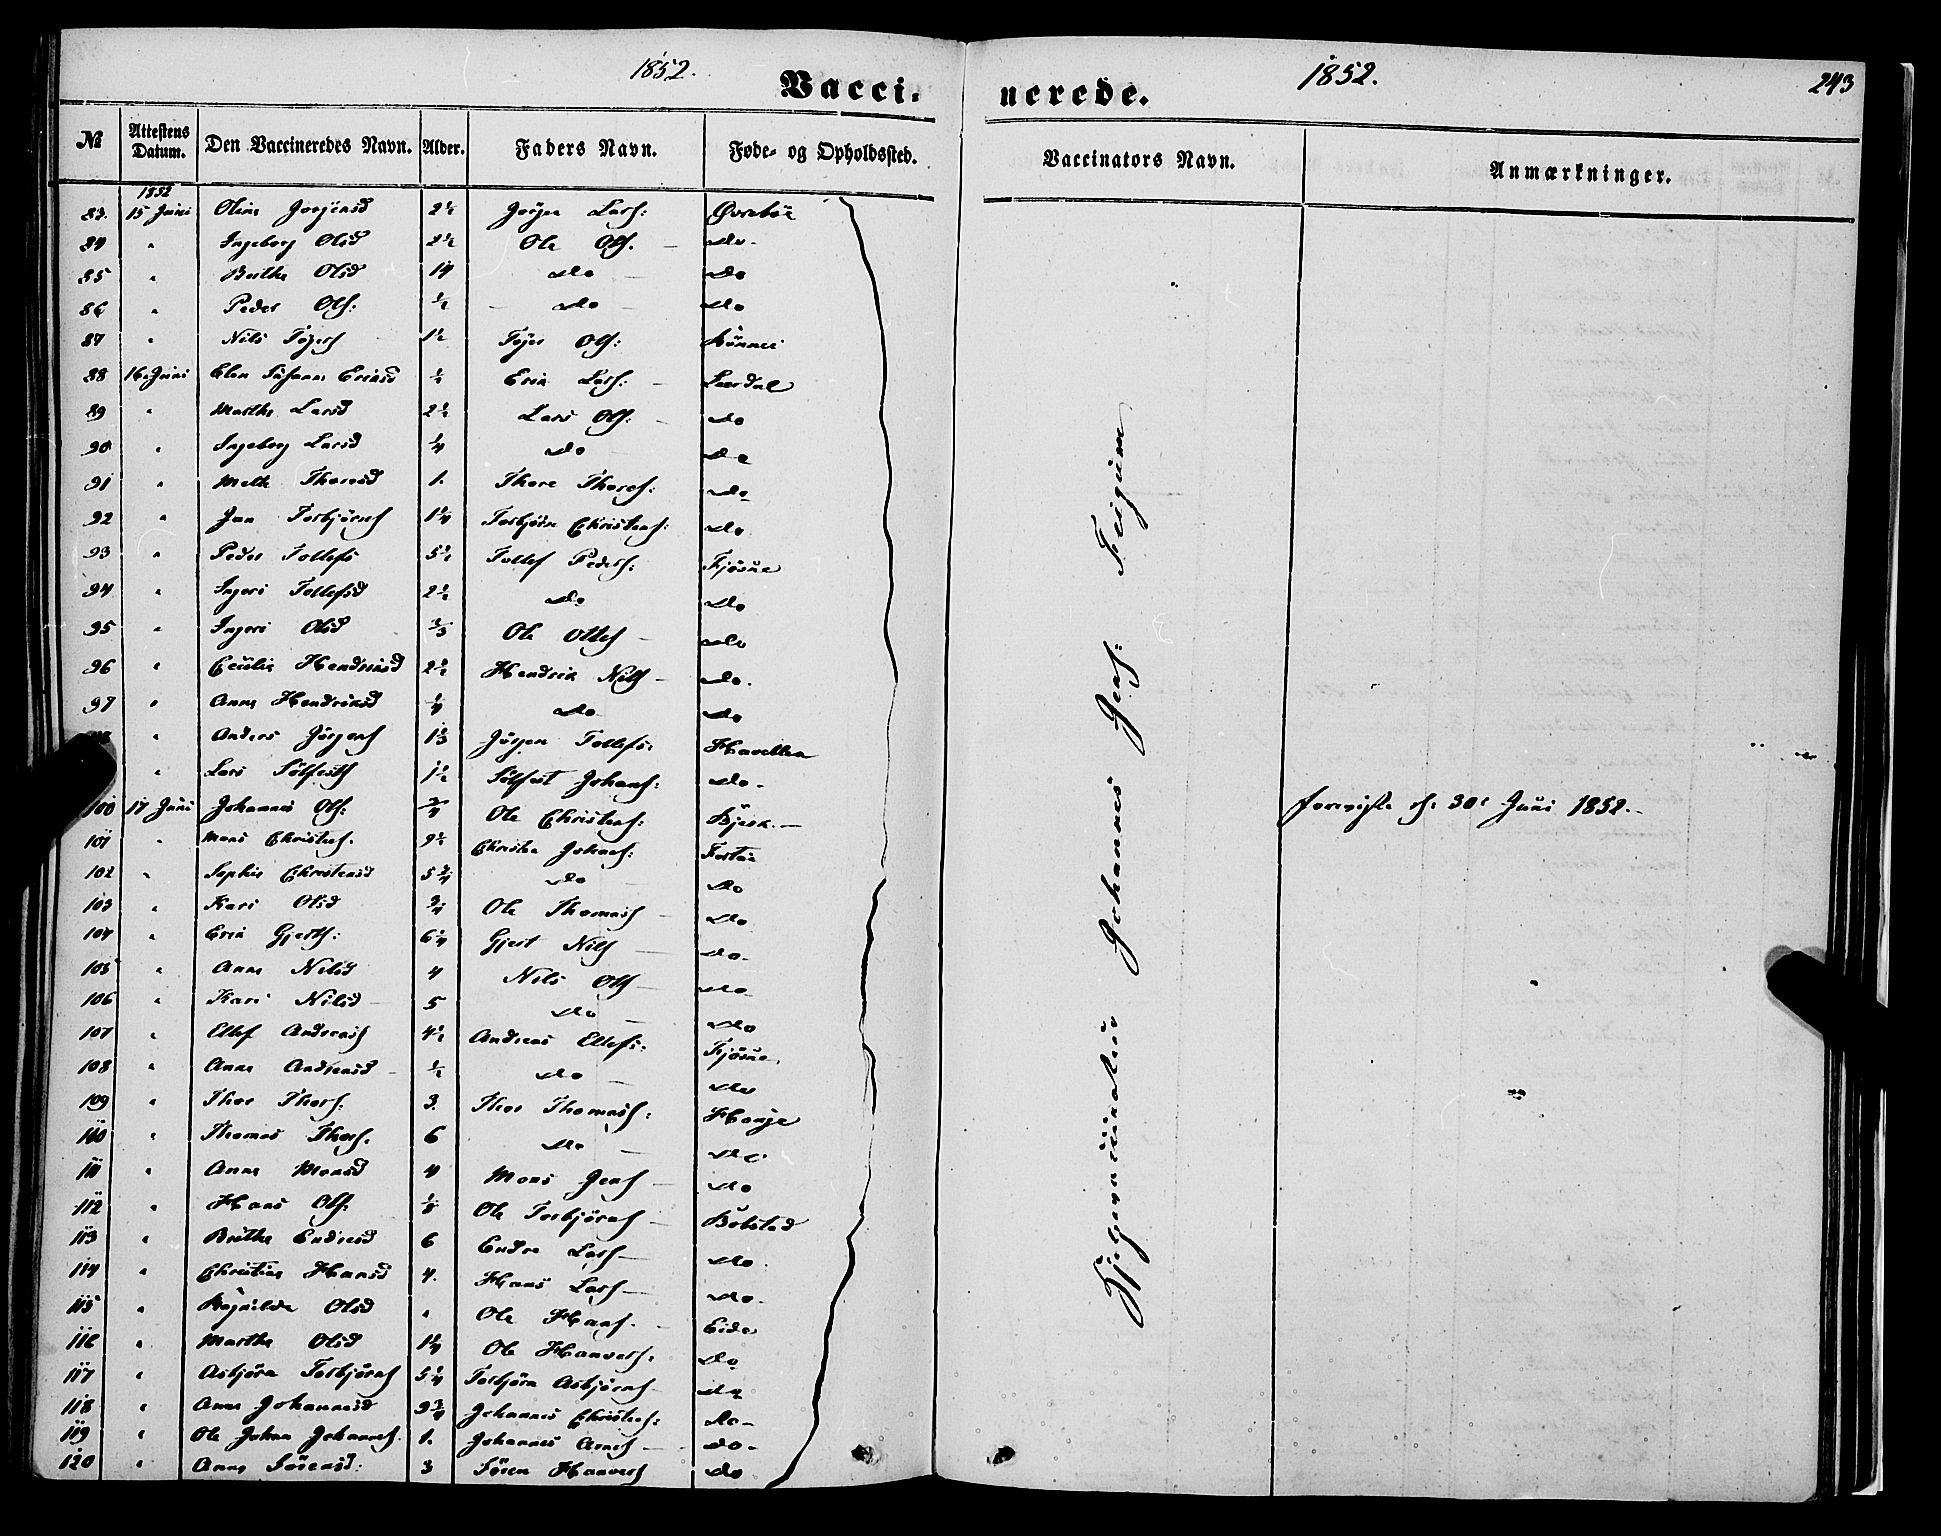 1852.
Vacci-
nerede.
1852.
243
№ Attestens Datum. Den Vaccineredes Navn. Alder. Faders Navn. Føde- og Opholdssted.
Vaccinators Navn. Anmærkninger.
1852
83. 15 Juni Oline Jørjensd 2½ Jørjen Lars: Øvrebøe
84 " Ingeborg Olsd 2½ Ole Ols. — do-
85 " Brithe Olsd 14 do do
86 " Peder Ols: ½ — do — do
87 " Nils Tøgers 1½ Tøjer Ols:
88 16 Juni Elen Susanne Eriksd ½ Erik Lars: — Leerdal
89 " Marthe Larsd 2½ Lars Ols: do
90 " Ingeborg Larsd ¼ do do
91 " Mette Thoresd 1. Thore Thores: do
92 " Jan Torbjørns 1¼ Torbjørn Christens: do
93 " Peder Tollefs 5½ Tollef Peders: Fjøsne
94 " Ingeri Tollefsd 2½ do do
95 " Ingeri Olsd ⅔ Ole Ottes — do
96 " Cecilie Hendriksd 2½ Hendrik Nils — do.
97 " Anne Hendriksd ¼ do do
" Anders Jørgens 1⅓ Jørgen Tollefs:
" Lars Sølfests 1½ Sølfest Johans: do-
100 17 Juni Johannes Ols: ¾ Ole Christens: Bjerk.—
101 " Mons Christens. 9½ Christen Johans:
102 " Sophie Christensd 5¾ do — do
103 " Kari Olsd ¾ Ole Thomass — do
104 " Erik Gjerts: 6¼ Gjert Nils — do-
105 " Anne Nilsd 4 Nils Ols — do-
106 " Kari Nilsd 5 do — do
107 " Ellef Andreass 4½ Andreas Ellefs: Fjøsne.
108 " Anne Andreasd — ½ do — do
109 " Thor Thors: 3. Thor Thomass: Hauge
110 " Thomas Thors. 6 do — do
111 " Anne Monsd 4 Mons Jens — do
112 " Hans Ols: ⅛ Ole Torbjørns —
113 " Brithe Endresd 6 Endre Lars — do.
114 " Christine Hansd 4. Hans Lars — do-
115 " Olsd " Ole Hans. — Eide
116 " Marthe Olsd 1¼ Ole Hanvers. do
117 " Asbjørn Torbjørns 5¼ Torbjørn Asbjørns do
118 " Anne Johannesd 9¾ Johannes Christens: do-
119 " Ole Johan Johannes 1. Johannes Arnes — do-
120 " Anne Sørensd: 3 Søren Hanvers do
Hjelpevaccinateur Johannes Jens: Feigum
foreviste d: 30e Juni 1852.-